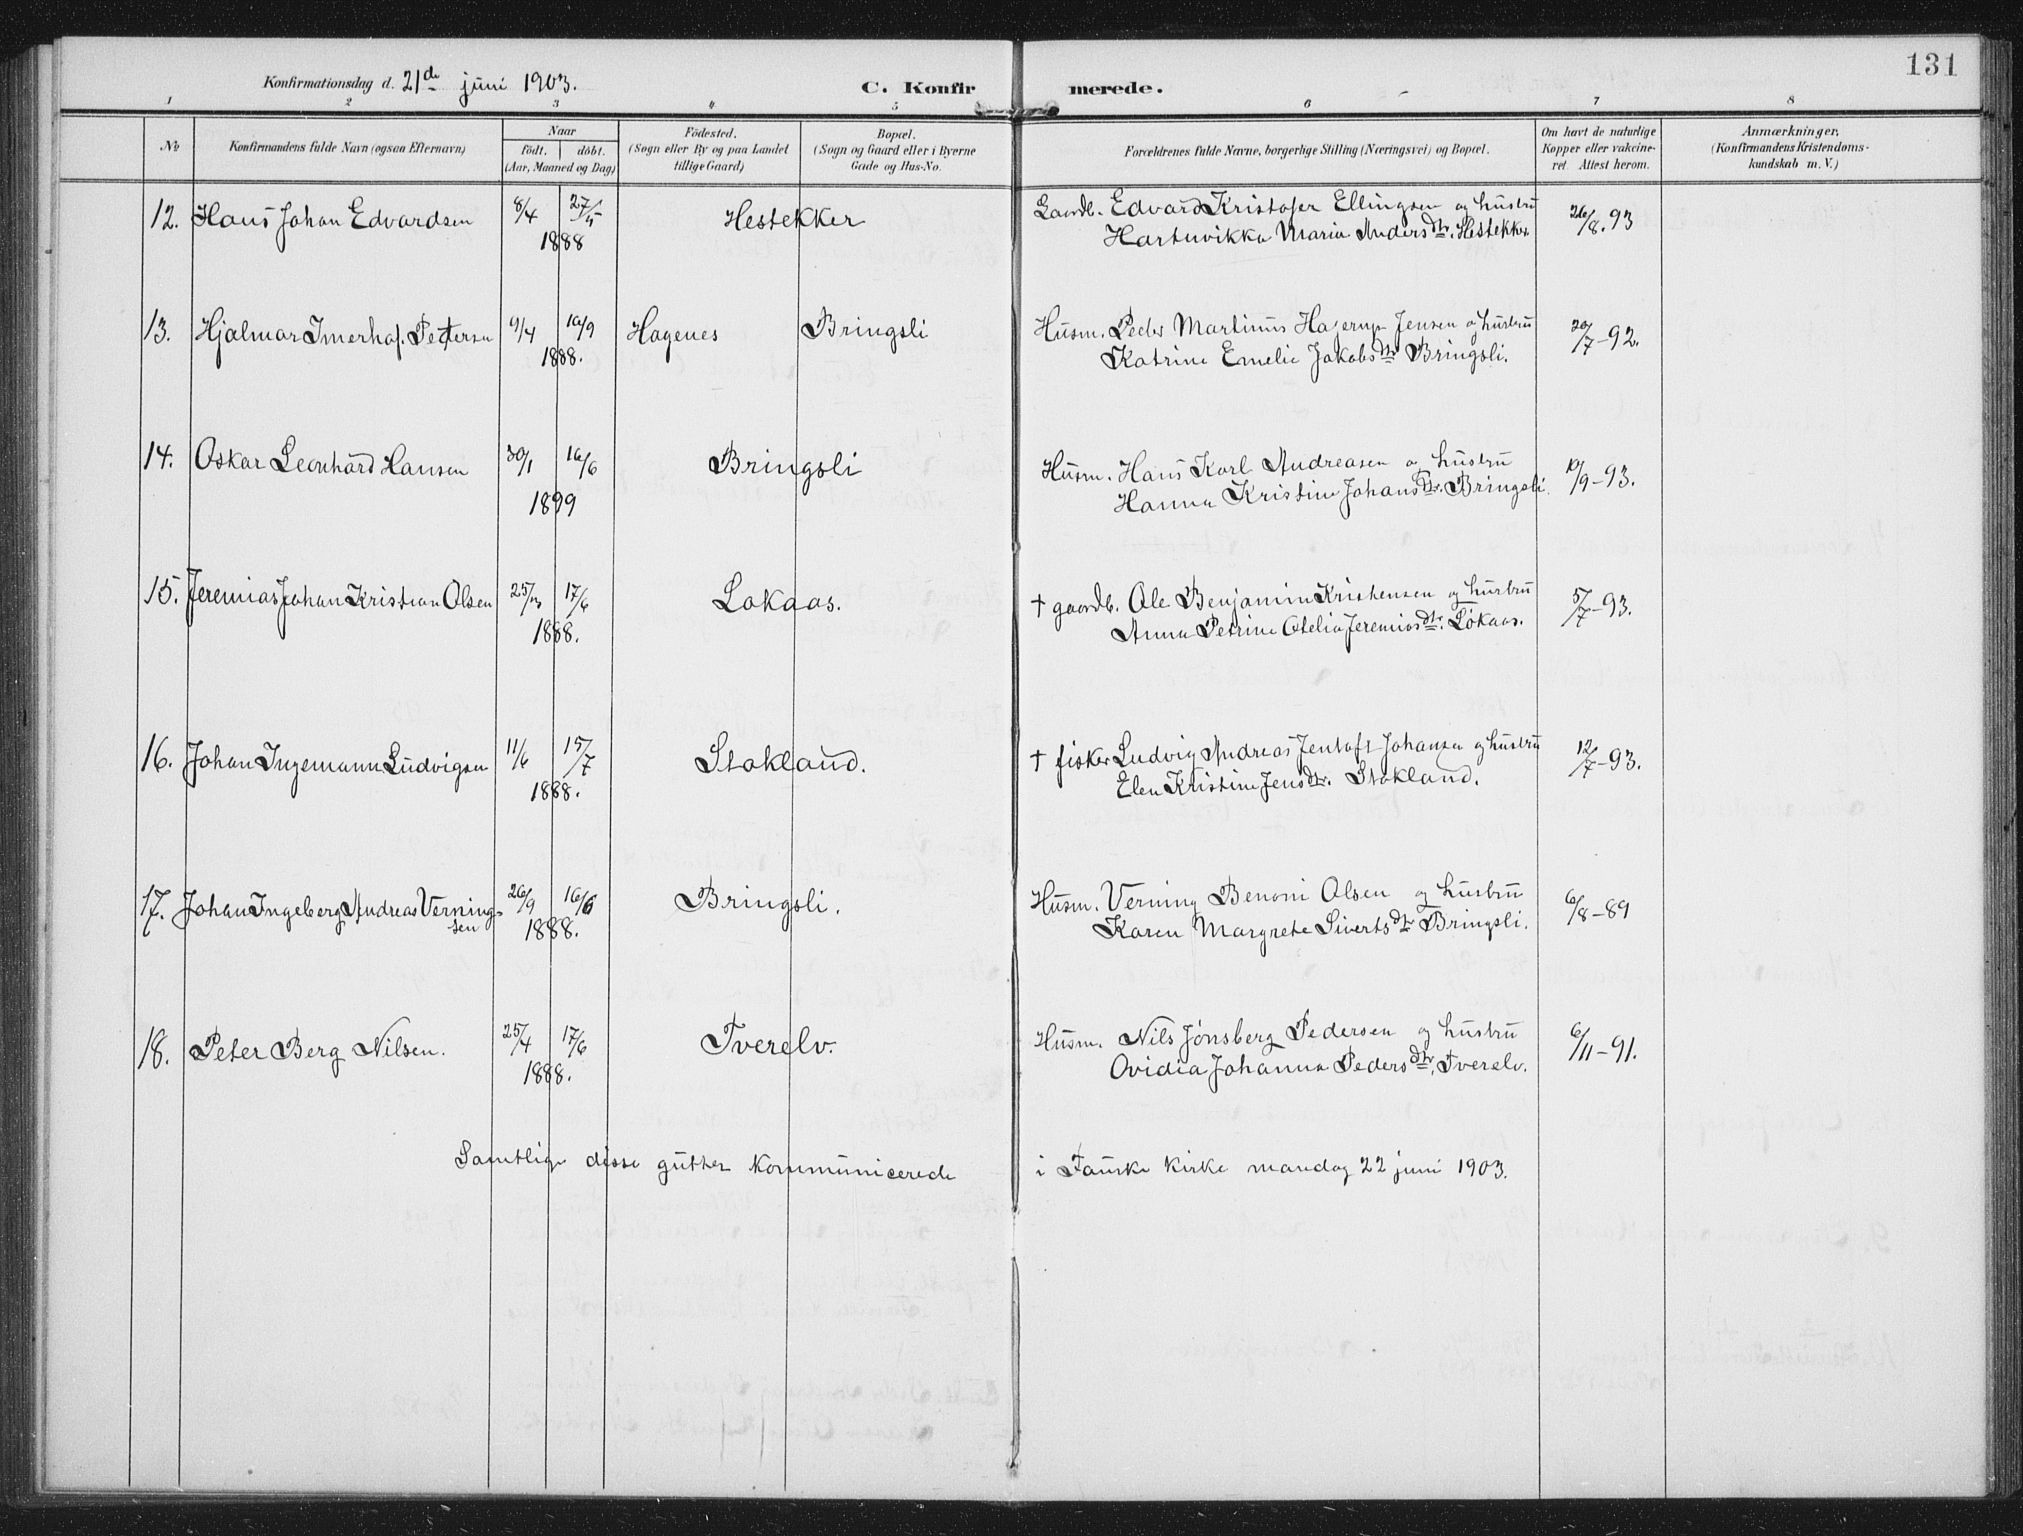 131
Konfirmationsdag d. 21de juni 1903. C. Konfirmerede.
1 2 3 4 5 6 7 8
No
Konfirmandens fulde Navn (ogsaa Efternavn)
Naar
født. døbt.
(Aar, Maaned og Dag)
Födested.
(Sogn eller By og paa Landet
tillige Gaard)
Bopæl.
(Sogn og Gaard eller i Byerne
Gade og Hus-No.
Forældrenes fulde Navne, borgerlige Stilling (Næringsvei) og Bopæl.
Om havt de naturlige
Kopper eller vakcine-
ret Attest herom.
Anmærkninger,
(Konfirmandens Kristendoms-
kundskab m. V.)
12. Hans Johan Edvardsen 8/4 27/5 Hestekker Gaardb. Edvard Kristofer Ellingsen og hustru 26/8. 93
1888 Hartuvikka Maria Andersdtr. Hestekker
13. Hjalmar Imerhaf. Petersen 9/4 16/9 Hagenes Bringsli Husm. Peder Martinus Hagerup Jensen og hustru 20/7-92.
1888. Katrine Emelie Jakobsdtr Bringsli.
14. Oskar Leonhard Hansen 30/1 16/6 Bringsli Husm. Hans Karl Andreasen og hustru 10/9-93.
1899 Hanna Kristine Johansdtr. Bringsli.
15. Jeremias Johan Kristian Olsen 25/3 17/6 Lokaas. † gaardb. Ole Benjamin Kristensen og hustru 5/7-93.
1888. Anna Petrine Otelia Jeremiasdtr. Lökaas.
16. Johan Ingemann Ludvigsen 11/6 15/7 Stokland. † fisker Ludvig Andreas Jentoft Johansen og hustru 12/7-93.
1888. Elen Kristine Jensdtr. Stokland.
17. Johan Ingeberg Andreas Vernings- 26/9 16/6 Bringsli. Husm. Verning Benoni Olsen og hustru 6/8-89
sen 1888. Karen Margrete Sivertsdtr Bringsli.
18. Peter Berg Nilsen. 25/4 17/6 Tverelv. Husm. Nils Jønsberg Pedersen og hustru 6/11-91.
1888. Ovidia Johanna Pedersdtr, Tverelv.
Samtlige disse gutter kommunicerede i Fauske kirke mandag 22 juni 1903.